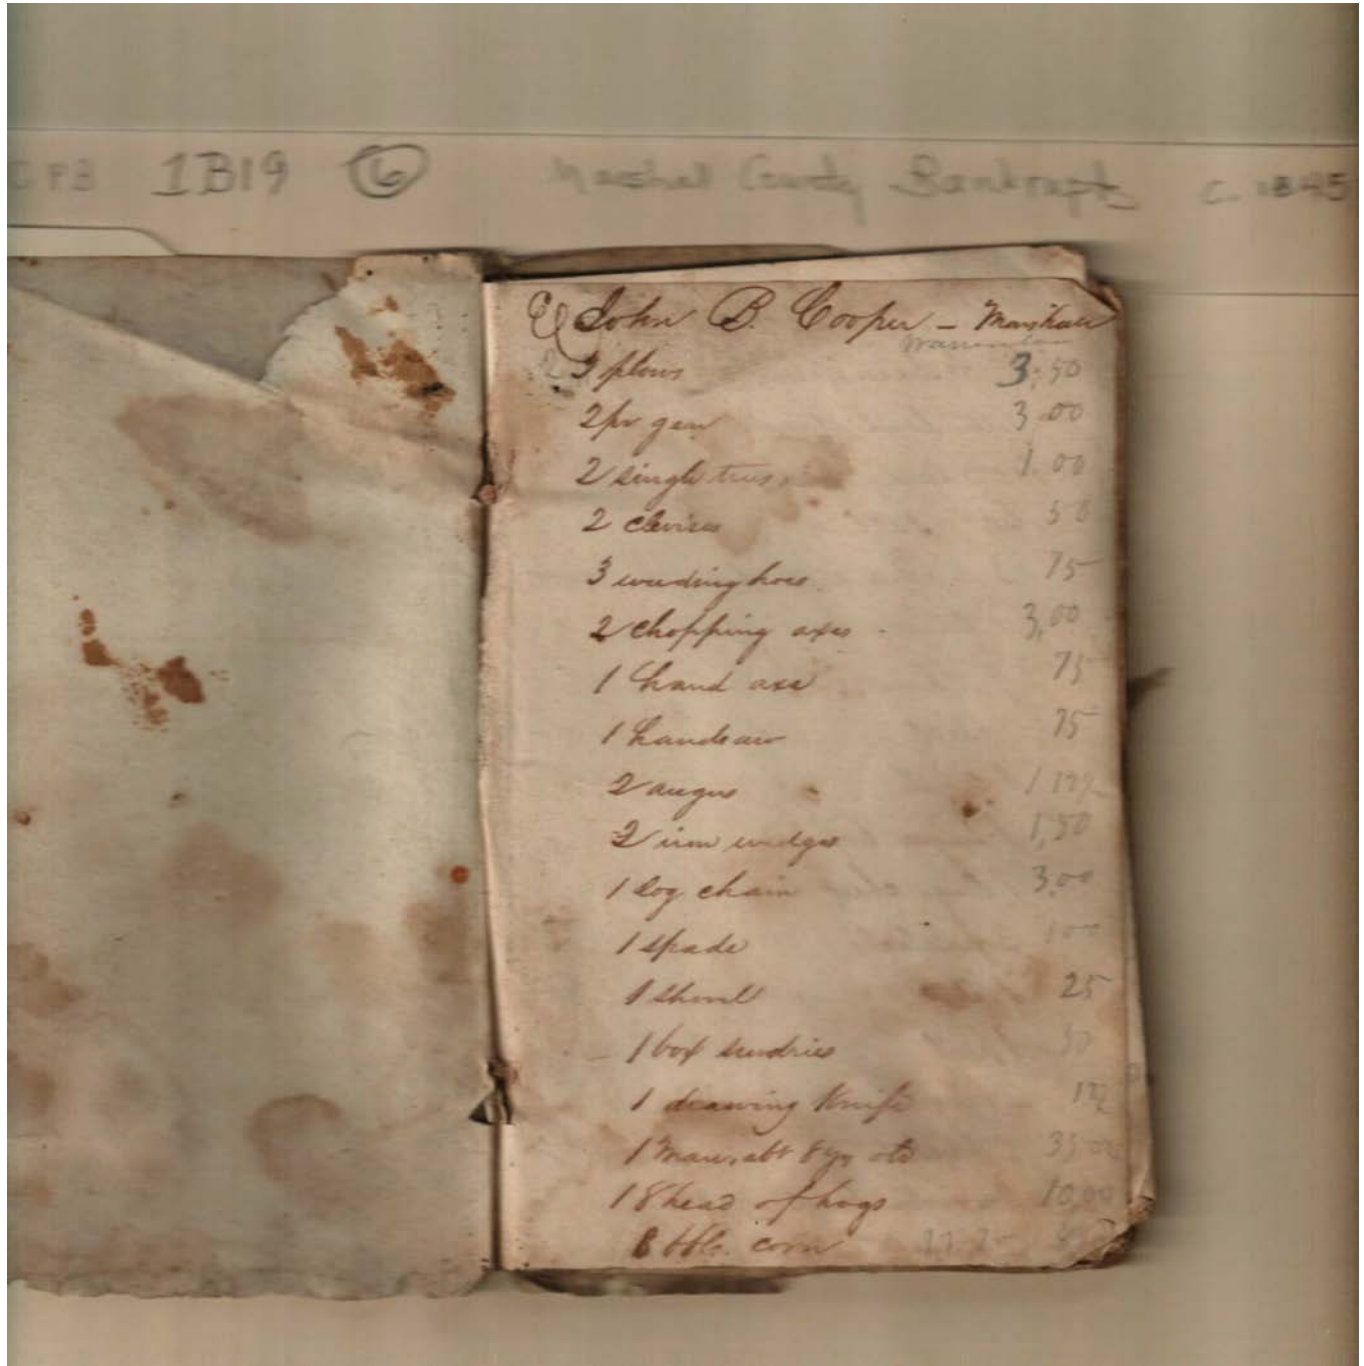 1B19 6 Marshal County Bankrupts C. 1845
John B. Cooper - Marshall
3 plows 3.50
2 pr gear 3.00
2 single trees 1.00
2 clevises 50
3 weeding hoes 75
2 chopping axes 3,00
1 hand axe 75
1 handsaw 75
2 augus
2 iron wedges 1,50
1 log chain 3,00
1 spade 100
1 shovel 25
1 box sundries 50
1 drawing Knife
1 Mare, abt 8 yrs old 35 00
18 head of hogs 10,00
bbls. corn